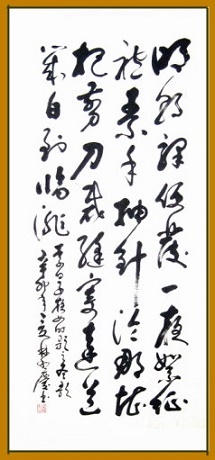 明朝驛使發一夜絮征
袍素手抽針冷那堪
把剪刀裁縫寄遠道
幾日到臨洮
李白子夜 歌之冬歌
辛卯年 夏